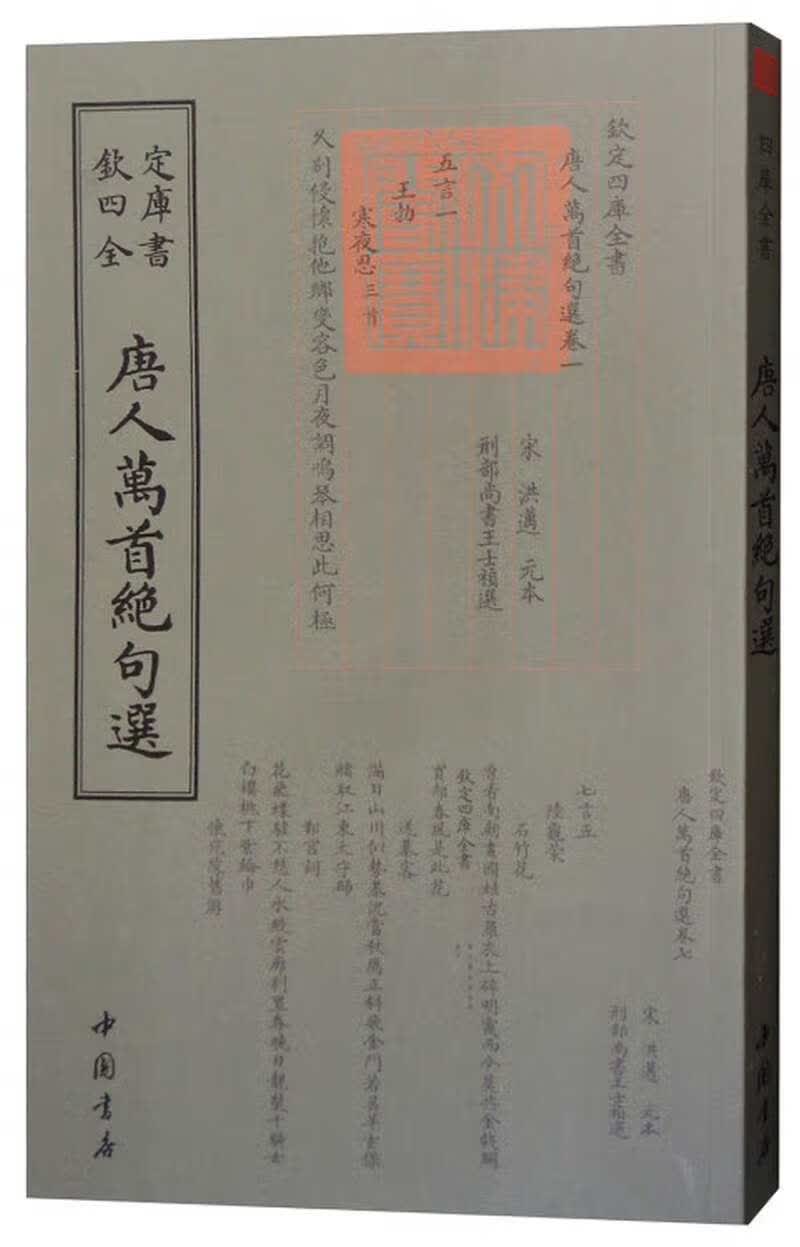 欽定四庫全書
唐人萬首絕句選
中國書店
欽定四庫全書
唐人萬首絕句選卷一
宋 洪邁 元本
刑部尚書王士禎選
五言一
王勃
寒夜思三首
久別侵懷抱他鄉變容色月夜調鳴琴相思此何極
欽定四庫全書
唐人萬首絕句選卷七
宋 洪邁 元本
刑部尚書王士禎選
七言五
陸龜蒙
石竹花
曾看南朝畫國娃古羅衣上碎明霞而今莫共金錢鬭
欽定四庫全書
買却春風是此花
送棊客
滿目山川似勢棊況當秋鴈正斜飛金門若召羊玄保
賭取江東太守歸
鄴宮詞
花飛蝶駭不愁人水殿雲廊別置春曉日靚裝千騎女
白櫻桃下紫綸巾
懷宛陵舊遊
四庫全書
唐人萬首絕句選
中國書店